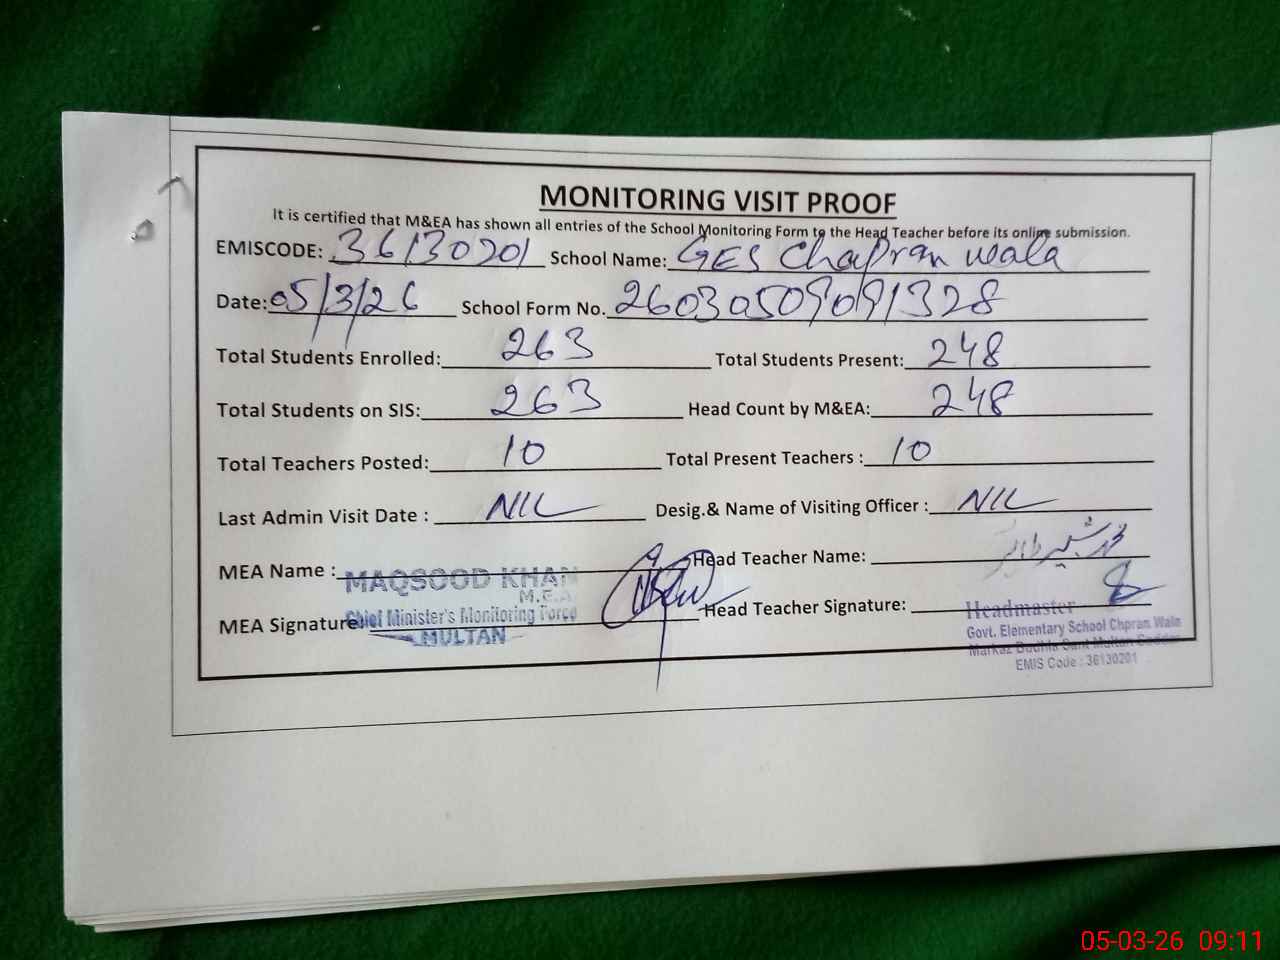 MONITORING VISIT PROOF
It is certified that M&EA has shown all entries of the School Monitoring Form to the Head Teacher before its online submission.
EMISCODE: 36130201 School Name: GES Chapran wala
Date: 05/3/26 School Form No. 26030509091328
Total Students Enrolled: 263 Total Students Present: 248
Total Students on SIS: 263 Head Count by M&EA: 248
Total Teachers Posted: 10 Total Present Teachers : 10
Last Admin Visit Date : NIL Desig.& Name of Visiting Officer : NIL
MEA Name : MAQSOOD KHAN Head Teacher Name:
M.E.A
MEA Signature Chief Minister's Monitoring Force Head Teacher Signature:
MULTAN
Headmaster
Govt. Elementary School Chpran Wala
Markaz Budhla Sant Multan Saddar
EMIS Code : 36130201
05-03-26 09:11